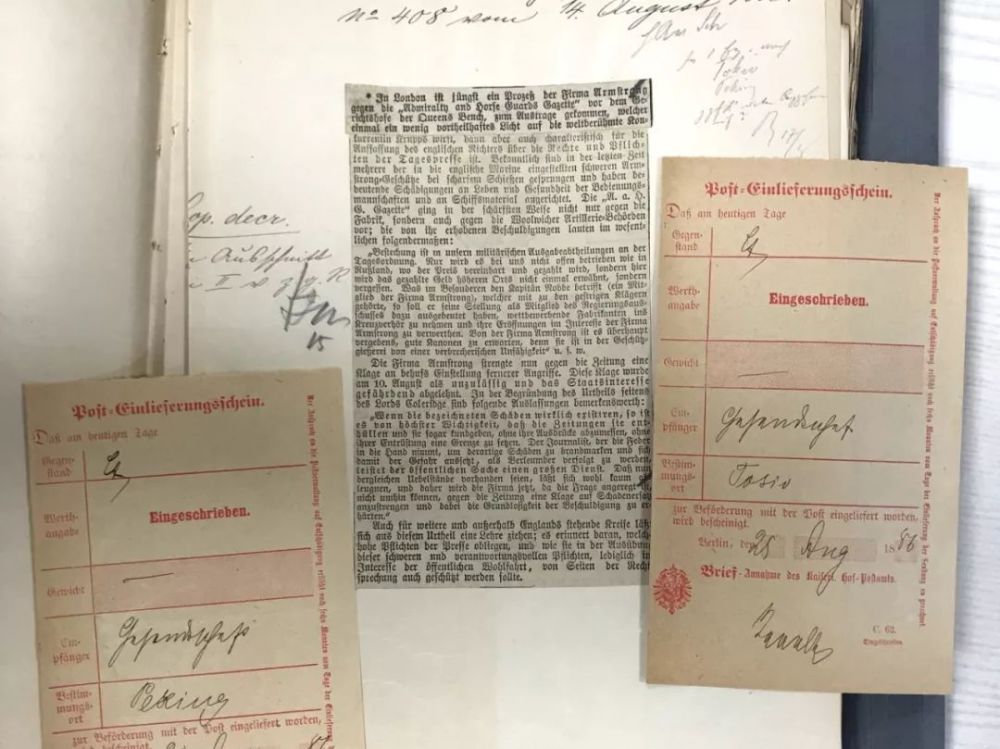 no 408 vom 14. August
Tokio
Peking
cp. decr.
* In London ist jüngst ein Prozeß der Firma Armstrong
gegen die „Admiralty and Horse Guards Gazette“ vor dem Ge-
richtshofe der Queens Bench, zum Austrage gekommen, welcher
einmal ein wenig vortheilhaftes Licht auf die weltberühmte Kon-
kurrentin Krupps wirft, dann aber auch charakteristisch für die
Auffassung des englischen Richters über die Rechte und Pflich-
ten der Tagespresse ist. Bekanntlich sind in der letzten Zeit
mehrere der in die englische Marine eingestellten schweren Arm-
strong-Geschütze bei scharfem Schießen gesprungen und haben be-
deutende Schädigungen an Leben und Gesundheit der Bedienungs-
mannschaften und an Schiffsmaterial angerichtet. Die „A. a. H.
G. Gazette“ ging in der schärfsten Weise nicht nur gegen die
Fabrik, sondern auch gegen die Woolwicher Artillerie-Behörden
vor; die von ihr erhobenen Beschuldigungen lauten im wesent-
lichen folgendermaßen:
„Bestechung ist in unsern militärischen Ausgabeabtheilungen an der
Tagesordnung. Nur wird es bei uns nicht offen betrieben wie in
Rußland, wo der Preis vereinbart und gezahlt wird, sondern hier
wird das gezahlte Geld höheren Orts nicht einmal erwähnt, sondern
vergessen. Was im Besonderen den Kapitän Noble betrifft (ein Mit-
glied der Firma Armstrong), welcher mit zu den gestrigen Klägern
gehörte, so soll er eine Stellung als Mitglied des Regierungsaus-
schusses dazu ausgebeutet haben, wettbewerbende Fabrikanten ins
Kreuzverhör zu nehmen und ihre Eröffnungen im Interesse der Firma
Armstrong zu verwerthen. Von der Firma Armstrong ist es überhaupt
vergebens, gute Kanonen zu erwarten, denn sie ist in der Geschütz-
gießerei von einer verbrecherischen Unfähigkeit“ u. s. w.
Die Firma Armstrong strengte nun gegen die Zeitung eine
Klage an behufs Einstellung fernerer Angriffe. Diese Klage wurde
am 10. August als unzulässig und das Staatsinteresse
gefährdend abgelehnt. In der Begründung des Urtheils seitens
des Lords Coleridge sind folgende Auslassungen bemerkenswerth:
„Wenn die bezeichneten Schäden wirklich existiren, so ist
es von höchster Wichtigkeit, daß die Zeitungen sie ent-
hüllen und sie sogar kundgeben, ohne ihre Ausdrücke abzumessen, ohne
ihrer Entrüstung eine Grenze zu setzen. Der Journalist, der die Feder
in die Hand nimmt, um derartige Schäden zu brandmarken und sich
damit der Gefahr aussetzt, als Verleumder verfolgt zu werden,
leistet der öffentlichen Sache einen großen Dienst. Daß nun
dergleichen Uebelstände vorhanden seien, läßt sich wohl kaum
leugnen, und daher wird die Firma jetzt, da die Frage angeregt ist,
nicht umhin können, gegen die Zeitung eine Klage auf Schadenersatz
anzustrengen und dabei die Grundlosigkeit der Beschuldigung zu er-
härten.“
Auch für weitere und außerhalb Englands stehende Kreise läßt
sich aus diesem Urtheil eine Lehre ziehen; es erinnert daran, welch
hohe Pflichten der Presse obliegen, und wie sie in der Ausübung
dieser schweren und verantwortungsvollen Pflichten, lediglich im
Interesse der öffentlichen Wohlfahrt, von Seiten der Recht-
sprechung auch geschützt werden sollte.
Post-Einlieferungsschein.
Daß am heutigen Tage
Gegen-
stand
Werth-
angabe
Eingeschrieben.
Gewicht
Em-
pfänger
Gesandtschaft
Bestim-
mungs-
ort
Peking
zur Beförderung mit der Post eingeliefert worden,
wird bescheinigt.
Post-Einlieferungsschein.
Daß am heutigen Tage
Gegen-
stand
Werth-
angabe
Eingeschrieben.
Gewicht
Em-
pfänger
Gesandtschaft
Bestim-
mungs-
ort
Tokio
zur Beförderung mit der Post eingeliefert worden,
wird bescheinigt.
Berlin, den 25 Aug 1886
Brief-Annahme des Kaiserl. Hof-Postamts.
C. 62.
Eingeschrieben